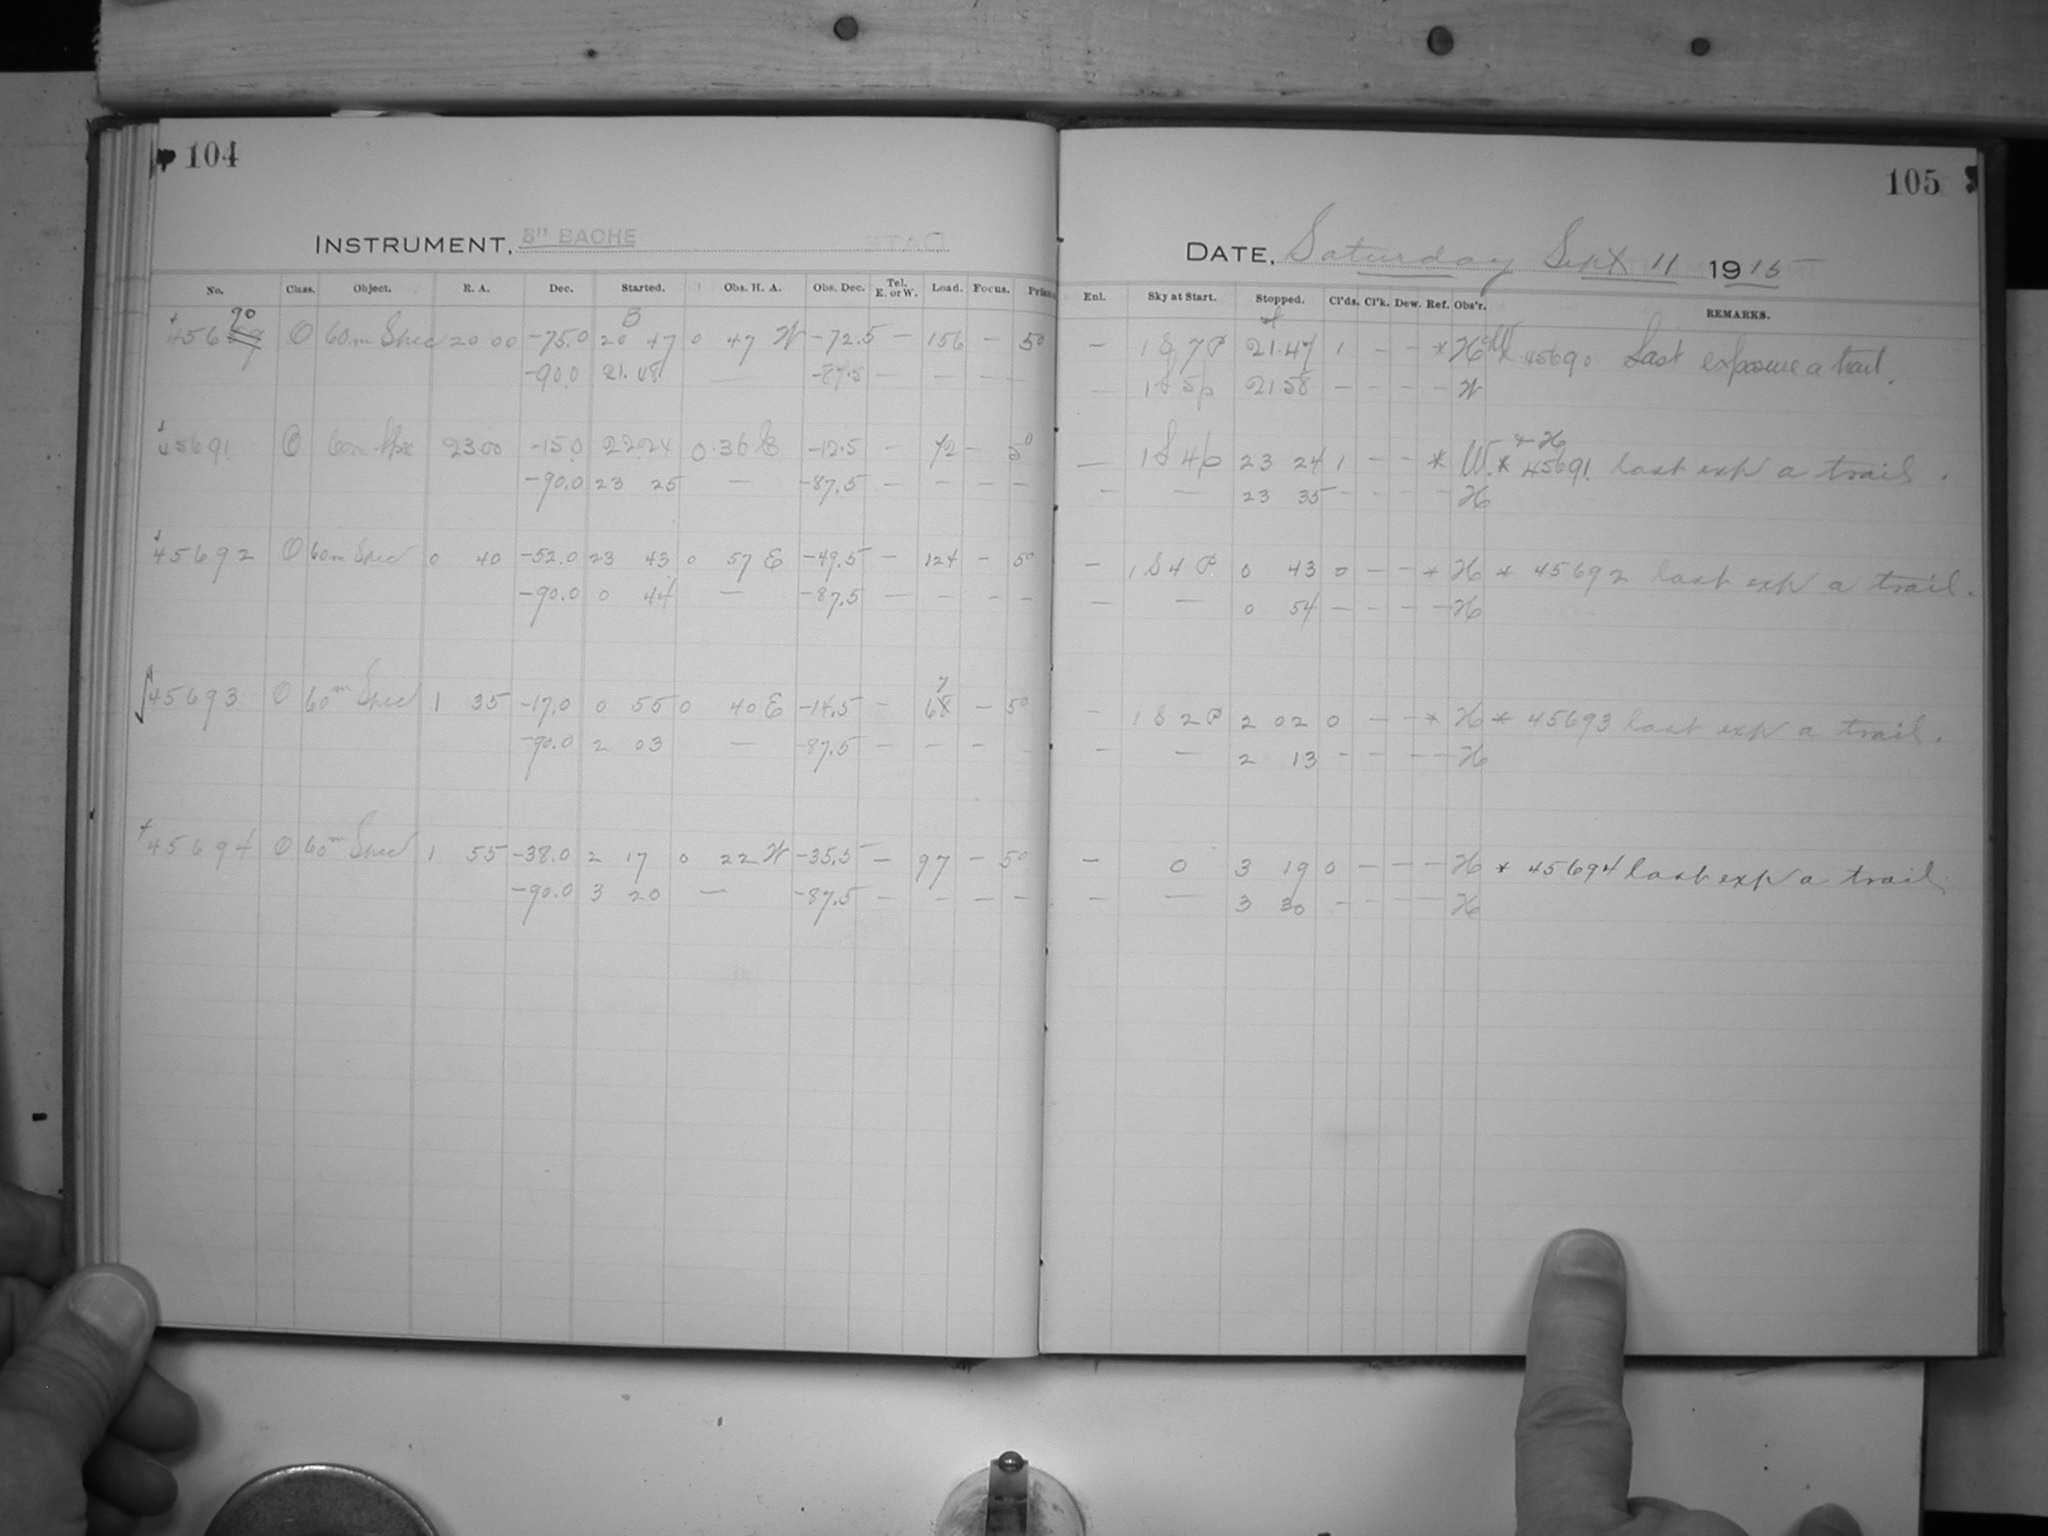 104
105
INSTRUMENT, 8" BACHE
DATE, Saturday Sept 11 1915
No. Class. Object. R. A. Dec. Started. Obs. H. A. Obs. Dec. Tel. E. or W. Load. Focus. Enl. Sky at Start. Stopped. Cl'ds. Cl'k. Dew. Ref. Obs'r. REMARKS.
90
456 O 60m Spec 20 00 -75.0 20 47 0 47 W -72.5 — 156 — 50 — 1 S 7 P 21.47 1 - - * 45690 Last exposure a trail.
-90.0 21.48 — -87.5 — — — — — 1 S 5p 21.58 - - - - H
45691 O 60m Spec 23 00 -15.0 22 24 0.36 E -12.5 — 72 — 50 — 1 S 4p 23 24 1 - - * W. + H * 45691 last exp a trail.
-90.0 23 25 — -87.5 — — — — — — 23 35 - - - - H
45692 O 60m Spec 0 40 -52.0 23 43 0 57 E -49.5 — 124 — 50 — 1 S 4 P 0 43 0 - - * H * 45692 last exp a trail.
-90.0 0 44 — -87.5 — — — — — — 0 54 - - - - H
45693 O 60m Spec 1 35 -17.0 0 55 0 40 E -14.5 — 67 — 50 — 1 S 2 P 2 02 0 - - * H * 45693 last exp a trail.
-90.0 2 03 — -87.5 — — — — — — 2 13 - - - - H
45694 O 60m Spec 1 55 -38.0 2 17 0 22 W -35.5 — 97 — 50 — 0 3 19 0 - - - H * 45694 last exp a trail
-90.0 3 20 — -87.5 — — — — — — 3 30 - - - - H